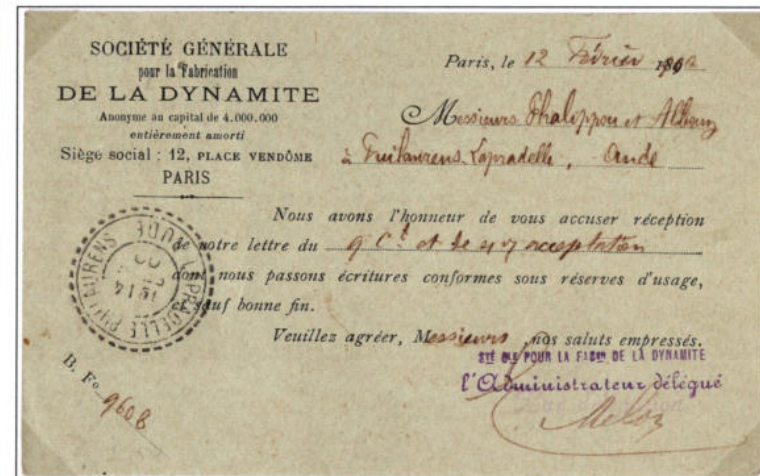 SOCIÉTÉ GÉNÉRALE
pour la Fabrication
DE LA DYNAMITE
Anonyme au capital de 4.000.000
entièrement amorti
Siège social : 12, PLACE VENDÔME
PARIS
Paris, le 12 Février
Messieurs Phalippou et
à Puilaurens. Lapradelle, Aude
Nous avons l'honneur de vous accuser réception
de votre lettre du 9 Ct et de acceptation
dont nous passons écritures conformes sous réserves d'usage,
et sauf bonne fin.
Veuillez agréer, Messieurs, nos saluts empressés.
STÉ GLE POUR LA FABON DE LA DYNAMITE
l'Administrateur délégué
LAPRADELLE PUILAURENS AUDE
B. Fo 9608